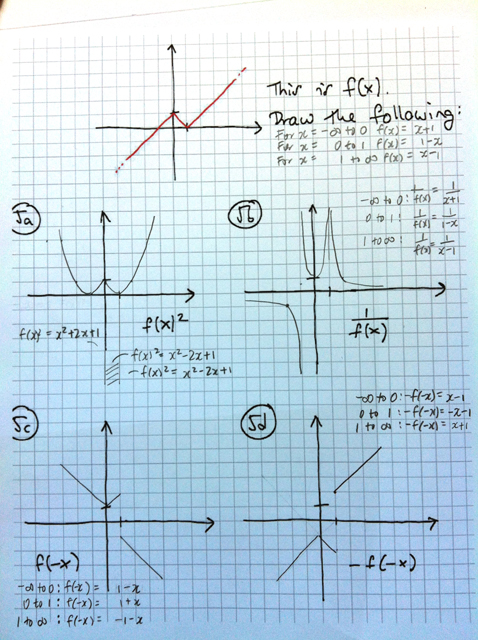 This is f(x).
Draw the following:
For x = -∞ to 0 f(x) = x+1
For x = 0 to 1 f(x) = 1-x
For x = 1 to ∞ f(x) = x-1
5a
f(x)² = x²+2x+1
f(x)²
f(x)² = x²-2x+1
-f(x)² = x²-2x+1
5b
-∞ to 0: 1/f(x) = 1/x+1
0 to 1: 1/f(x) = 1/1-x
1 to ∞: 1/f(x) = 1/x-1
1/f(x)
5c
f(-x)
-∞ to 0: f(-x) = 1-x
0 to 1: f(-x) = 1+x
1 to ∞: f(-x) = -1-x
5d
-∞ to 0: -f(-x) = x-1
0 to 1: -f(-x) = -x-1
1 to ∞: -f(-x) = x+1
-f(-x)